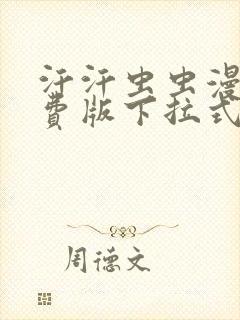 汗汗虫虫漫
费版下拉式
周德文